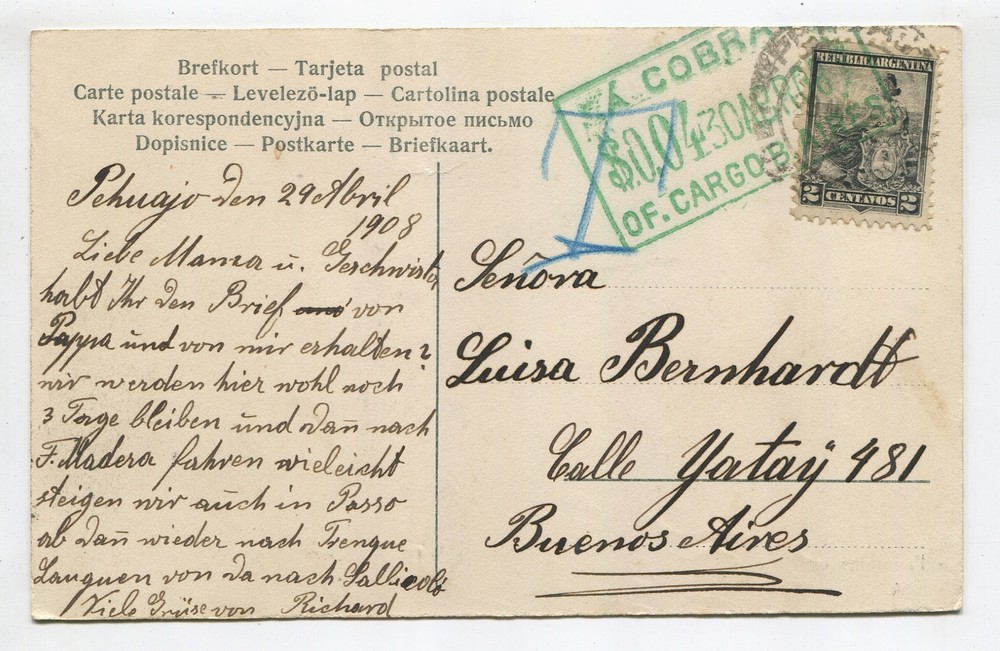 Brefkort — Tarjeta postal
Carte postale — Levelezö-lap — Cartolina postale
Karta korespondencyjna — Открытое письмо
Dopisnice — Postkarte — Briefkaart.
Pehuajo den 29 Abril
1908
Liebe Mama u. Geschwister,
habt Ihr den Brief von
Pappa und von mir erhalten?
wir werden hier wohl noch
3 Tage bleiben und dañ nach
F. Madera fahren vieleicht
steigen wir auch in Passo
ab dañ wieder nach Trenque
Lauquen von da nach Sallicolo
Viele Grüse von Richard
A COBRAR
$0.04 30
OF. CARGO B.
T
REPUBLICA ARGENTINA
2 CENTAVOS 2
Señora
Luisa Bernhardt
Calle Yataÿ 481
Buenos Aires